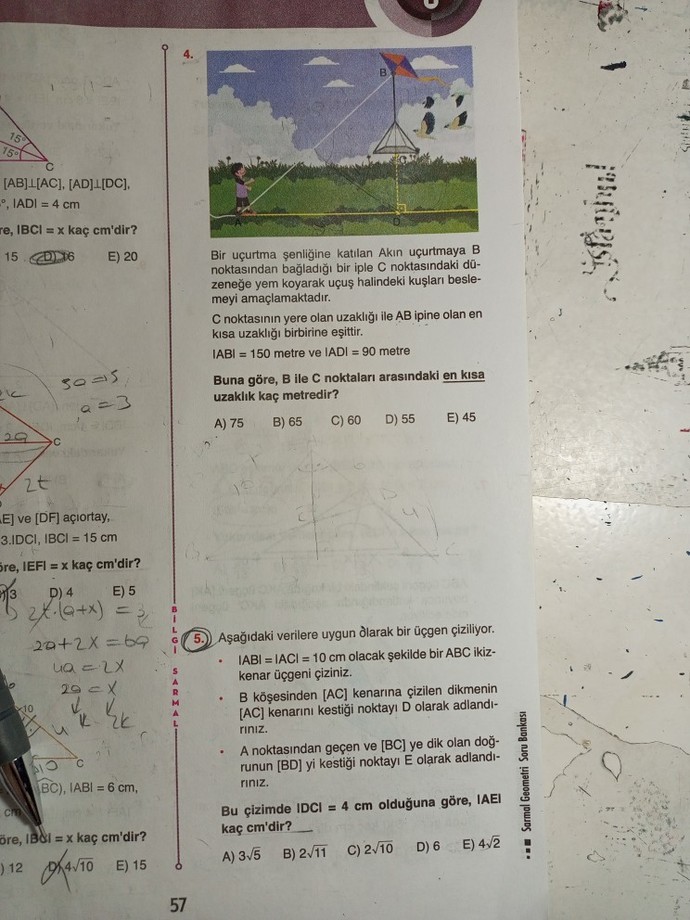 15°
15°
C
[AB]⊥[AC], [AD]⊥[DC],
°, IADI = 4 cm
re, IBCI = x kaç cm'dir?
15 D) 16 E) 20
5a = 15
a = 3
2a C
2t
AE] ve [DF] açıortay,
3.IDCI, IBCI = 15 cm
öre, IEFI = x kaç cm'dir?
3 D) 4 E) 5
2a+2x = 6a
4a = 2x
2a = x
k 2k
10
C
BC), IABI = 6 cm,
cm
öre, IBCI = x kaç cm'dir?
) 12 D) 4√10 E) 15
4.
B
C
A D
Bir uçurtma şenliğine katılan Akın uçurtmaya B
noktasından bağladığı bir iple C noktasındaki dü-
zeneğe yem koyarak uçuş halindeki kuşları besle-
meyi amaçlamaktadır.
C noktasının yere olan uzaklığı ile AB ipine olan en
kısa uzaklığı birbirine eşittir.
IABI = 150 metre ve IADI = 90 metre
Buna göre, B ile C noktaları arasındaki en kısa
uzaklık kaç metredir?
A) 75 B) 65 C) 60 D) 55 E) 45
BİLGİ SARMAL
5. Aşağıdaki verilere uygun olarak bir üçgen çiziliyor.
• IABI = IACI = 10 cm olacak şekilde bir ABC ikiz-
kenar üçgeni çiziniz.
• B köşesinden [AC] kenarına çizilen dikmenin
[AC] kenarını kestiği noktayı D olarak adlandı-
rınız.
• A noktasından geçen ve [BC] ye dik olan doğ-
runun [BD] yi kestiği noktayı E olarak adlandı-
rınız.
Bu çizimde IDCI = 4 cm olduğuna göre, IAEI
kaç cm'dir?
A) 3√5 B) 2√11 C) 2√10 D) 6 E) 4√2
Sarmal Geometri Soru Bankası
57